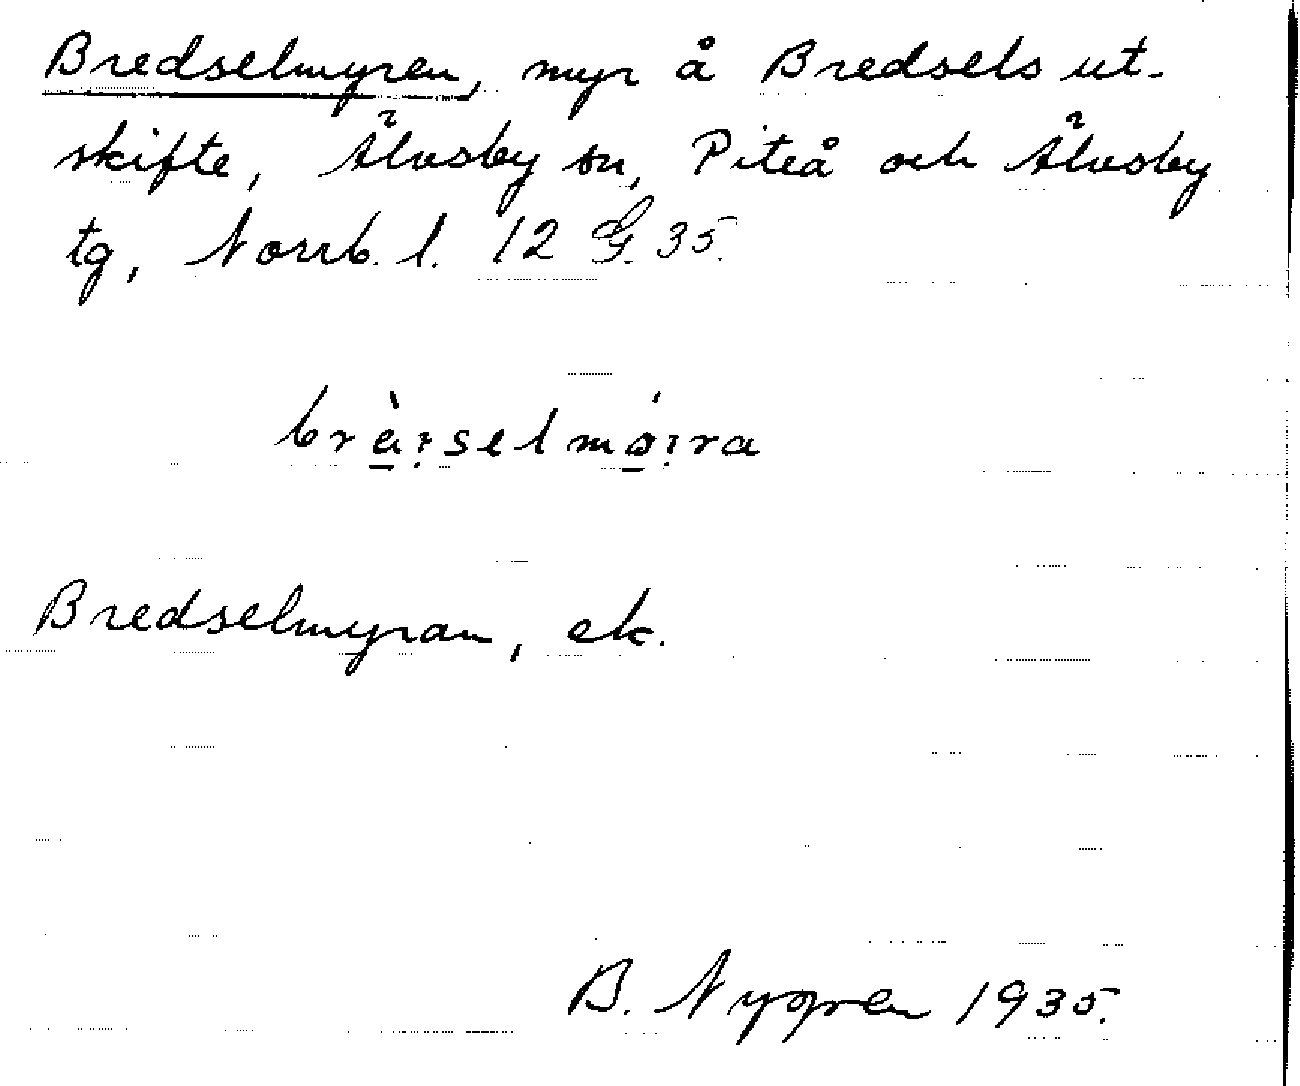 Bredselmyren, myr å Bredsels ut-
skifte, Älvsby sn, Piteå och Älvsby
tg, Norrb. l. 12 G. 35.
brà̱:selmó̱:ra
Bredselmyran, ek.
B. Nygren 1935.